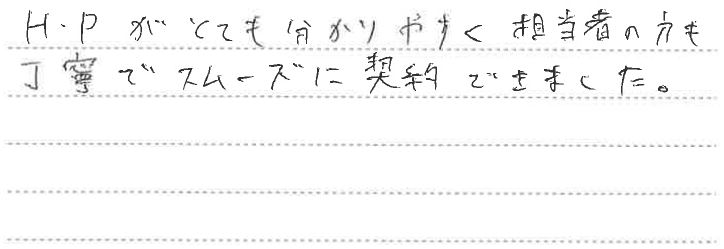 H・Pがとても分かりやすく担当者の方も
丁寧でスムーズに契約できました。